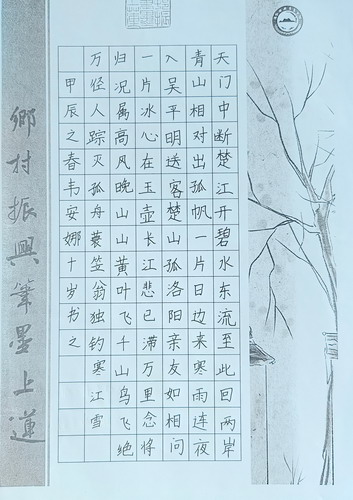 天门中断楚江开碧水东流至此回两岸
青山相对出孤帆一片日边来寒雨连夜
入吴平明送客楚山孤洛阳亲友如相问
一片冰心在玉壶长江悲已滞万里念将
归况属高风晚山山黄叶飞千山鸟飞绝
万径人踪灭孤舟蓑笠翁独钓寒江雪
甲辰之春韦安娜十岁书之
鄉村振興筆墨上蓮